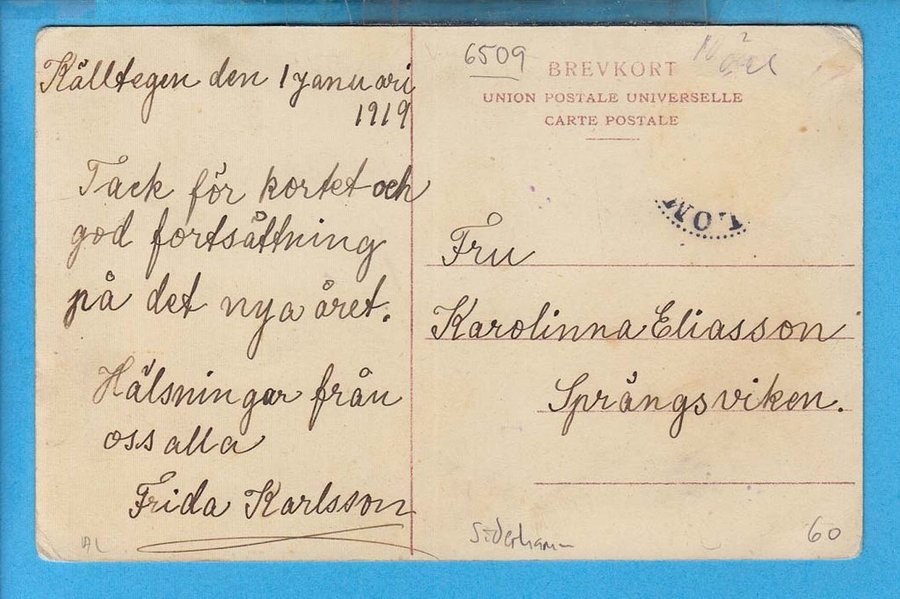 Källtegen den 1 januari
1919
Tack för kortet och
god fortsättning
på det nya året.
Hälsningar från
oss alla
Frida Karlsson
6509
BREVKORT
UNION POSTALE UNIVERSELLE
CARTE POSTALE
Fru
Karolinna Eliasson
Språngsviken.
Söderhamn
60